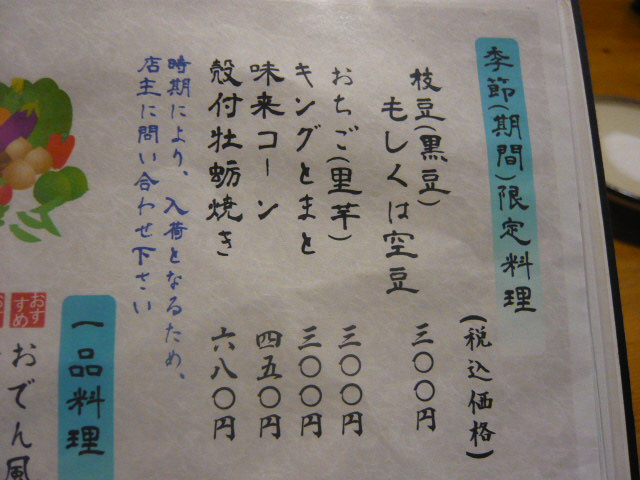 季節(期間)限定料理
(税込価格)
枝豆(黒豆)
もしくは空豆 三〇〇円
おちご(里芋) 三〇〇円
キングとまと 三〇〇円
味来コーン 四五〇円
殻付牡蛎焼き 六八〇円
時期により、入荷となるため、
店主に問い合わせ下さい
一品料理
おすすめ
おでん風